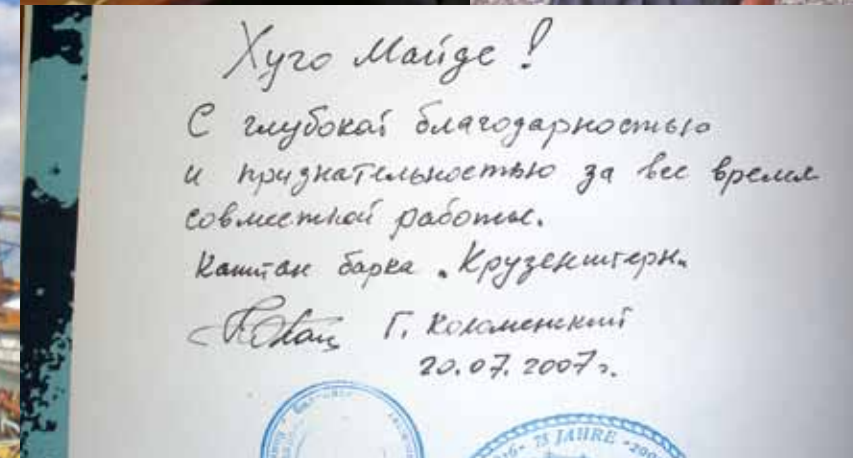 Хуго Майде!
С глубокой благодарностью
и признательностью за все время
совместной работы.
Капитан барка „Крузенштерн"
Г. Коломенский
20.07.2007г.
75 JAHRE